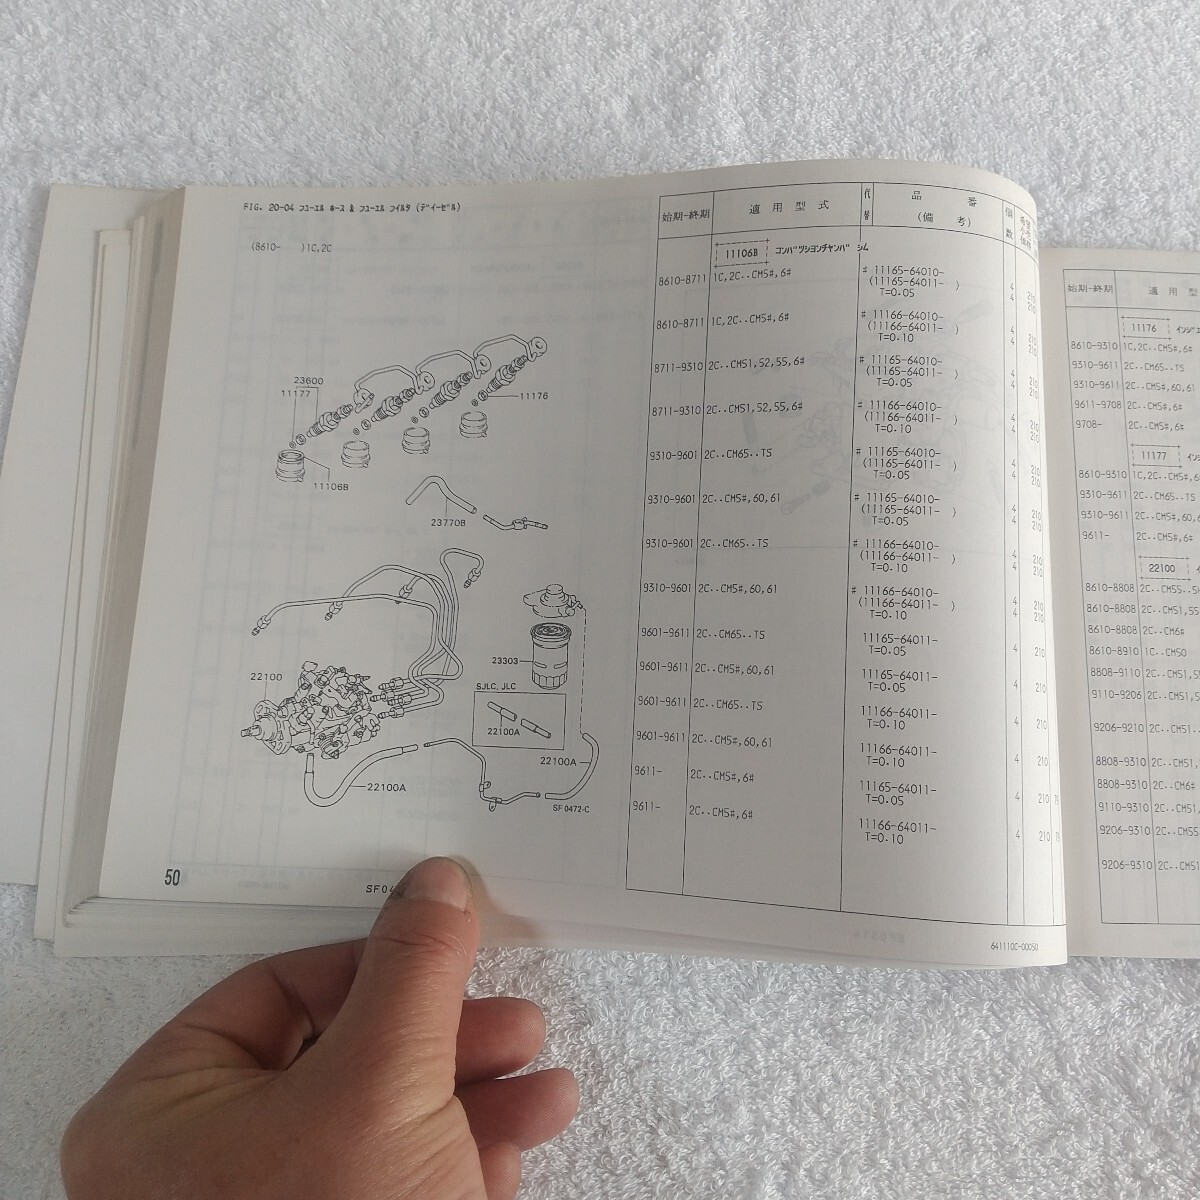 FIG. 20-04 フューエル ホース & フューエル フイルタ (デイーゼル)
(8610-　　)1C,2C
23600
11177
11176
11106B
23770B
22100
23303
SJLC, JLC
22100A
22100A
22100A
SF0472-C
50
SF04
始期-終期 適用型式 代替 品番 (備考) 個数
11106B コンバツシヨンチヤンバ シム
8610-8711 1C,2C..CM5#,6# # 11165-64010- 4 210
(11165-64011- ) 4 210
T=0.05
8610-8711 1C,2C..CM5#,6# # 11166-64010- 4 210
(11166-64011- ) 4 210
T=0.10
8711-9310 2C..CM51,52,55,6# # 11165-64010- 4 210
(11165-64011- ) 4 210
T=0.05
8711-9310 2C..CM51,52,55,6# # 11166-64010- 4 210
(11166-64011- ) 4 210
T=0.10
9310-9601 2C..CM65..TS # 11165-64010- 4 210
(11165-64011- ) 4 210
T=0.05
9310-9601 2C..CM5#,60,61 # 11165-64010- 4 210
(11165-64011- ) 4 210
T=0.05
9310-9601 2C..CM65..TS # 11166-64010- 4 210
(11166-64011- ) 4 210
T=0.10
9310-9601 2C..CM5#,60,61 # 11166-64010- 4 210
(11166-64011- ) 4 210
T=0.10
9601-9611 2C..CM65..TS 11165-64011- 4 210
T=0.05
9601-9611 2C..CM5#,60,61 11165-64011- 4 210
T=0.05
9601-9611 2C..CM65..TS 11166-64011- 4 210
T=0.10
9601-9611 2C..CM5#,60,61 11166-64011- 4 210
T=0.10
9611- 2C..CM5#,6# 11165-64011- 4 210
T=0.05
9611- 2C..CM5#,6# 11166-64011- 4 210
T=0.10
641110C-00050
始期-終期 適用型
11176
8610-9310 1C,2C..CM5#,6#
9310-9611 2C..CM65..TS
9310-9611 2C..CM5#,60,61
9611-9708 2C..CM5#,6#
9708- 2C..CM5#,6#
11177
8610-9310 1C,2C..CM5#,6#
9310-9611 2C..CM65..TS
9310-9611 2C..CM5#,60,6
9611- 2C..CM5#,6#
22100
8610-8808 2C..CM55..
8610-8808 2C..CM51,55
8610-8808 2C..CM6#
8610-8910 1C..CM50
8808-9110 2C..CM51,5
9110-9206 2C..CM51,5
9206-9210 2C..CM51
8808-9310 2C..CM51,
8808-9310 2C..CM6#
9110-9310 2C..CM51
9206-9310 2C..CM55
9206-9310 2C..CM51